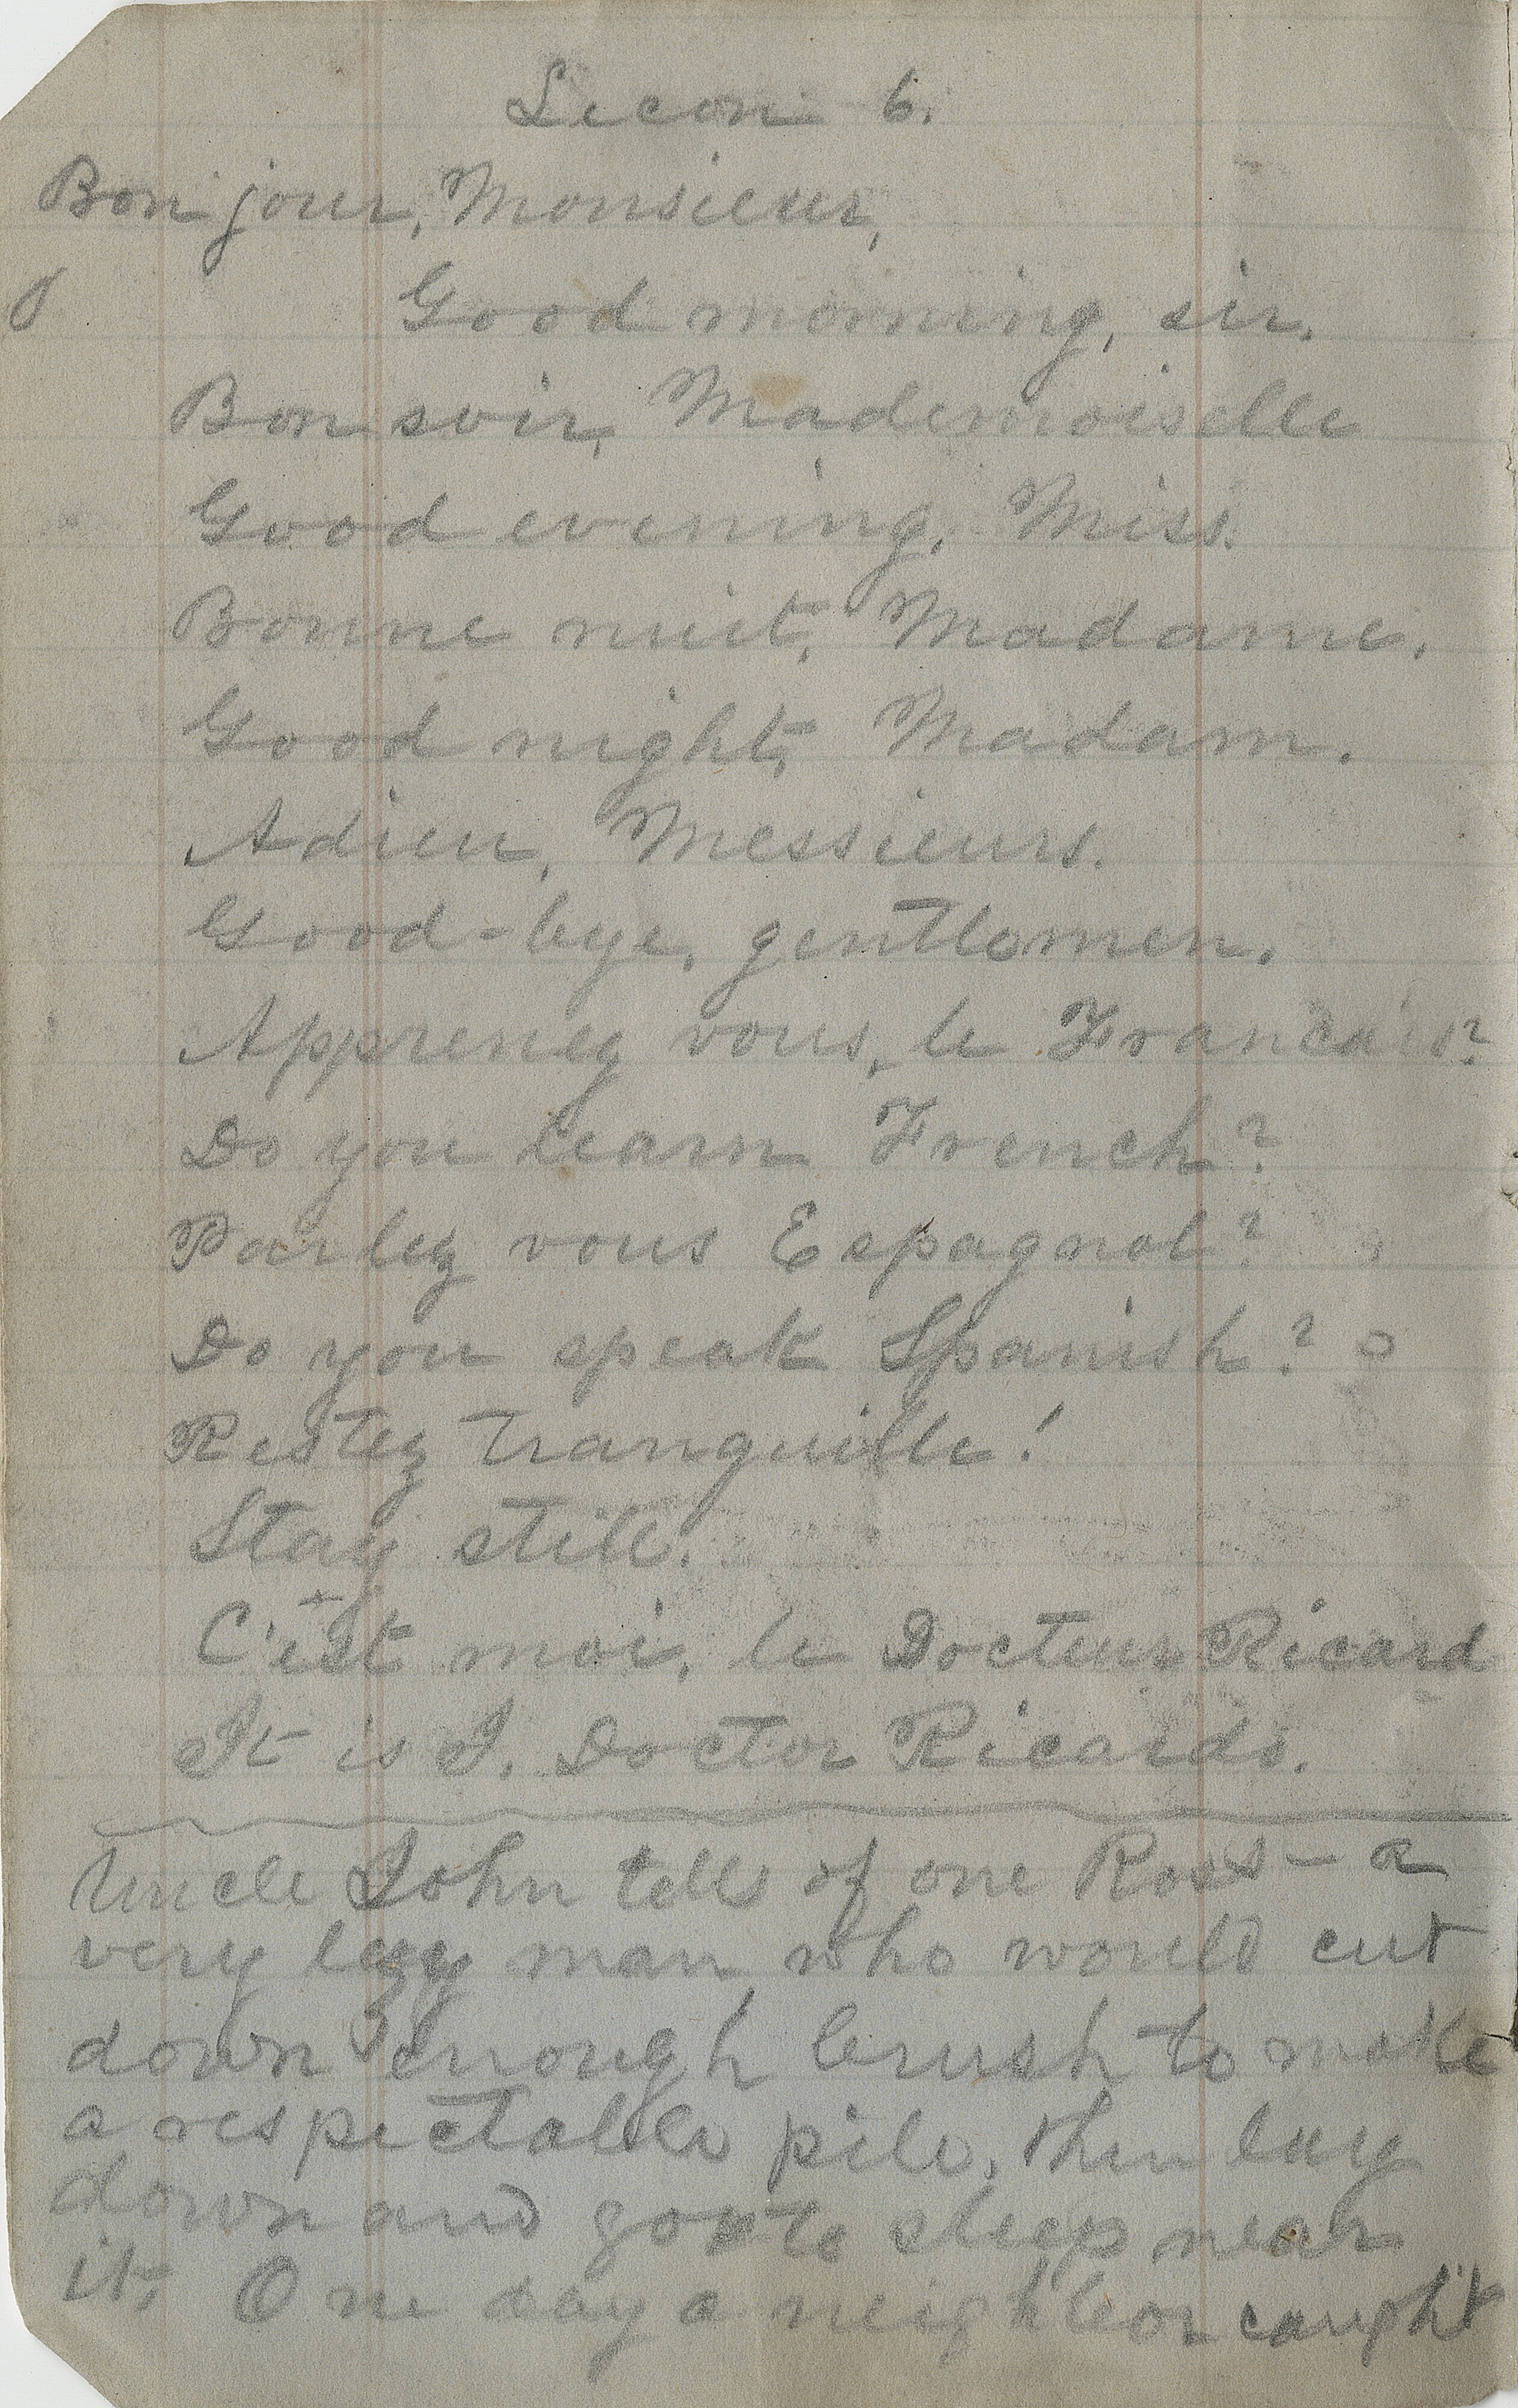 Lecon 6.
Bon jour, Monsieur,
Good morning, sir.
Bon soir, Mademoiselle
Good evening, Miss.
Bonne nuit, Madame.
Good night, Madam.
Adieu, Messieurs.
Good-bye, gentlemen.
Apprenez vous, le Francais?
Do you learn French?
Parlez vous Espagnol?
Do you speak Spanish?
Restez tranquille!
Stay still.
C'est moi, le Docteur Ricard
It is I. Doctor Ricards.
Uncle John tells of one Ross - a
very lazy man who would cut
down enough brush to make
a respectable pile, then lay
down and go to sleep near
it. One day a neighbor caught